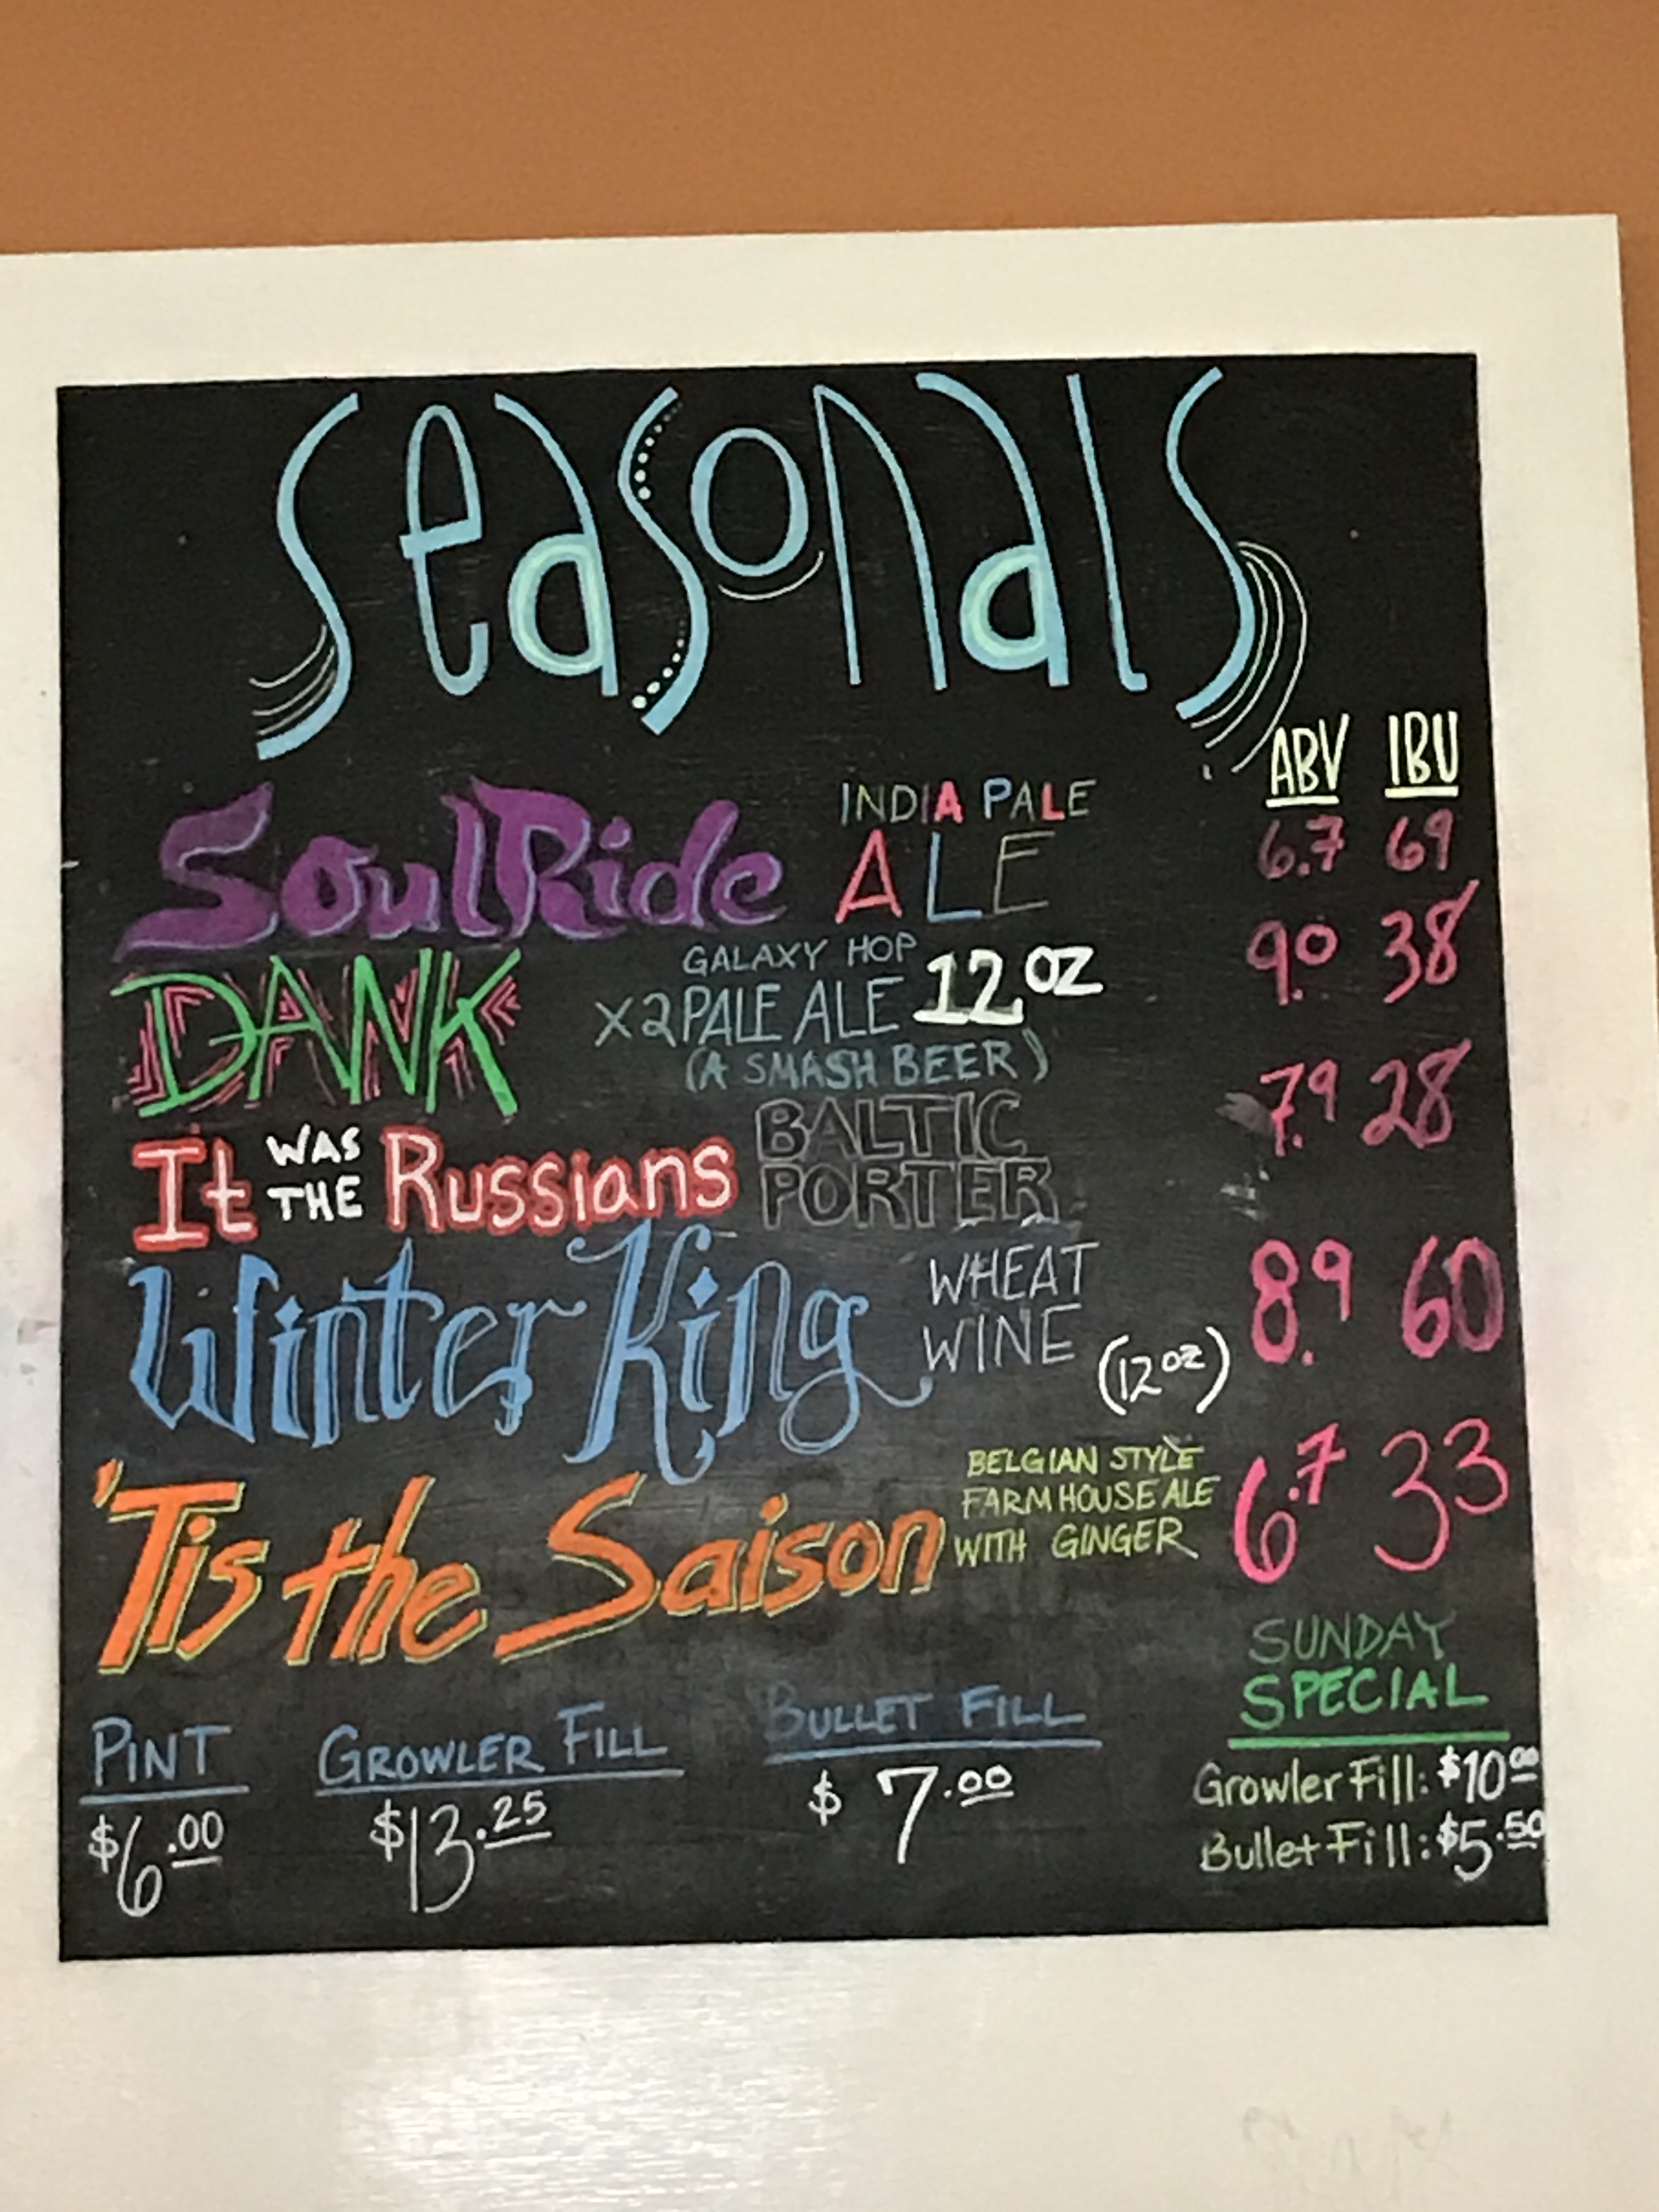 seasonals
ABV IBU
SoulRide INDIA PALE ALE 6.7 69
DANK GALAXY HOP x2 PALE ALE 12 OZ (A SMASH BEER) 9.0 38
It WAS THE Russians BALTIC PORTER 7.9 28
Winter King WHEAT WINE (12 oz) 8.9 60
'Tis the Saison BELGIAN STYLE FARMHOUSE ALE WITH GINGER 6.7 33
PINT
$6.00
GROWLER FILL
$13.25
BULLET FILL
$7.00
SUNDAY
SPECIAL
Growler Fill: $10.00
Bullet Fill: $5.50